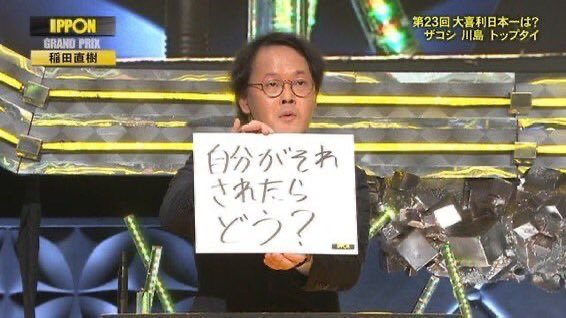 IPPON
GRAND PRIX
稲田直樹
第23回 大喜利日本一は?
ザコシ 川島 トップタイ
自分がそれ
されたら
どう?
IPPON